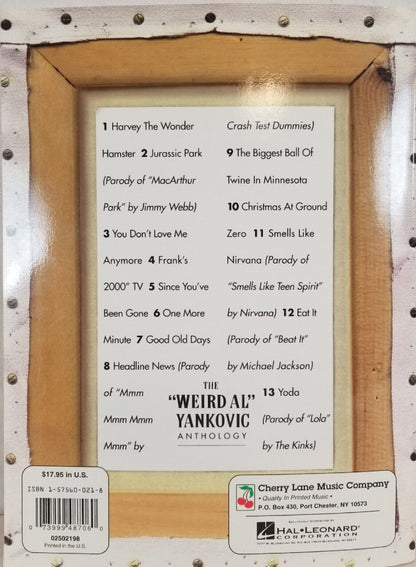 1 Harvey The Wonder
Hamster 2 Jurassic Park
(Parody of "MacArthur
Park" by Jimmy Webb)
3 You Don't Love Me
Anymore 4 Frank's
2000" TV 5 Since You've
Been Gone 6 One More
Minute 7 Good Old Days
8 Headline News (Parody
of "Mmm
Mmm Mmm
Mmm" by
Crash Test Dummies)
9 The Biggest Ball Of
Twine In Minnesota
10 Christmas At Ground
Zero 11 Smells Like
Nirvana (Parody of
"Smells Like Teen Spirit"
by Nirvana) 12 Eat It
(Parody of "Beat It"
by Michael Jackson)
13 Yoda
(Parody of "Lola"
by The Kinks)
THE
"WEIRD AL"
YANKOVIC
ANTHOLOGY
$17.95 in U.S.
ISBN 1-57560-021-8
0 73999 48706 0
02502198
Printed in U.S.
Cherry Lane Music Company
• Quality In Printed Music •
P.O. Box 430, Port Chester, NY 10573
HAL•LEONARD
CORPORATION